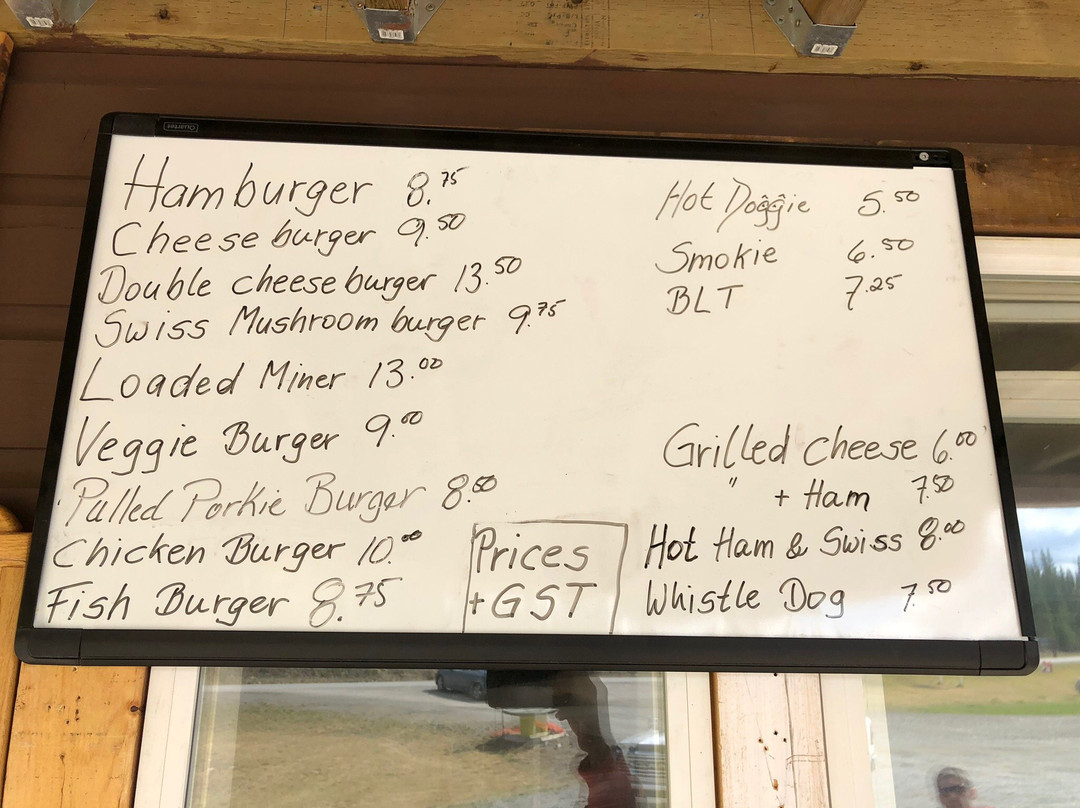 Quartet
Hamburger 8.75
Cheeseburger 9.50
Double cheeseburger 13.50
Swiss Mushroom burger 9.75
Loaded Miner 13.00
Veggie Burger 9.00
Pulled Porkie Burger 8.50
Chicken Burger 10.00
Fish Burger 8.75
Prices
+ GST
Hot Doggie 5.50
Smokie 6.50
BLT 7.25
Grilled cheese 6.00
" + Ham 7.50
Hot Ham & Swiss 8.00
Whistle Dog 7.50